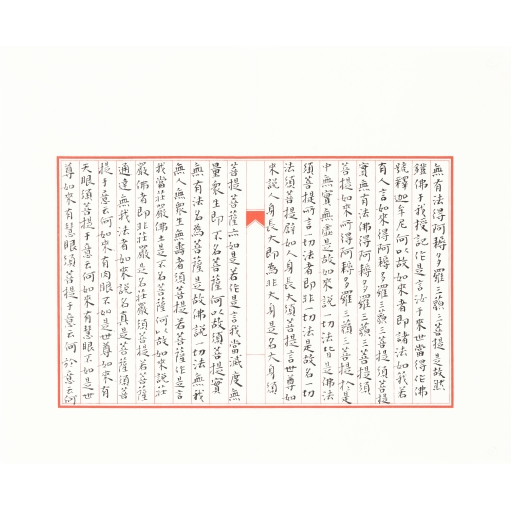 無有法得阿耨多羅三藐三菩提是故然
燈佛于我授記作是言汝于來世當得作佛
號釋迦牟尼何以故如來者即諸法如義若
有人言如來得阿耨多羅三藐三菩提須菩提
實無有法佛得阿耨多羅三藐三菩提須
菩提如來所得阿耨多羅三藐三菩提於是
中無實無虛是故如來說一切法皆是佛法
須菩提所言一切法者即非一切法是故名一切
法須菩提譬如人身長大須菩提言世尊如
來說人身長大即為非大身是名大身須
菩提菩薩亦如是若作是言我當滅度無
量衆生即不名菩薩何以故須菩提實
無有法名為菩薩是故佛說一切法無我
無人無衆生無壽者須菩提若菩薩作是言
我當莊嚴佛土是不名菩薩何以故如來說莊
嚴佛者即非莊嚴是名莊嚴須菩提若菩薩
通達無我法者如來說名真是菩薩須菩
提于意云何如來有肉眼不如是世尊如來有
天眼須菩提于意云何如來有慧眼不如是世
尊如來有慧眼須菩提于意云何於意云何